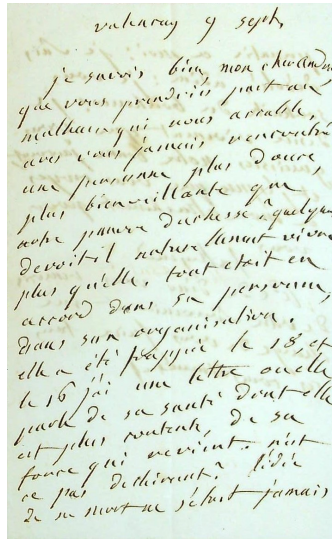 valençay 9 sept.
je savois bien, mon cher
que vous prendriés part au
malheur qui nous accable,
avés vous jamais rencontré
une personne plus douce,
plus bienveillante que
notre pauvre duchesse?
devoit il naturellement vivre
plus qu'elle. tout etoit en
accord dans sa personne,
dans son organisation.
elle a été frappée le 18, et
le 16 j'ai une lettre ou elle
parle de sa santé dont elle
est plus contente, de sa
force qui revient. n'est
ce pas dechirant? l'idée
de sa mort ne s'étoit jamais